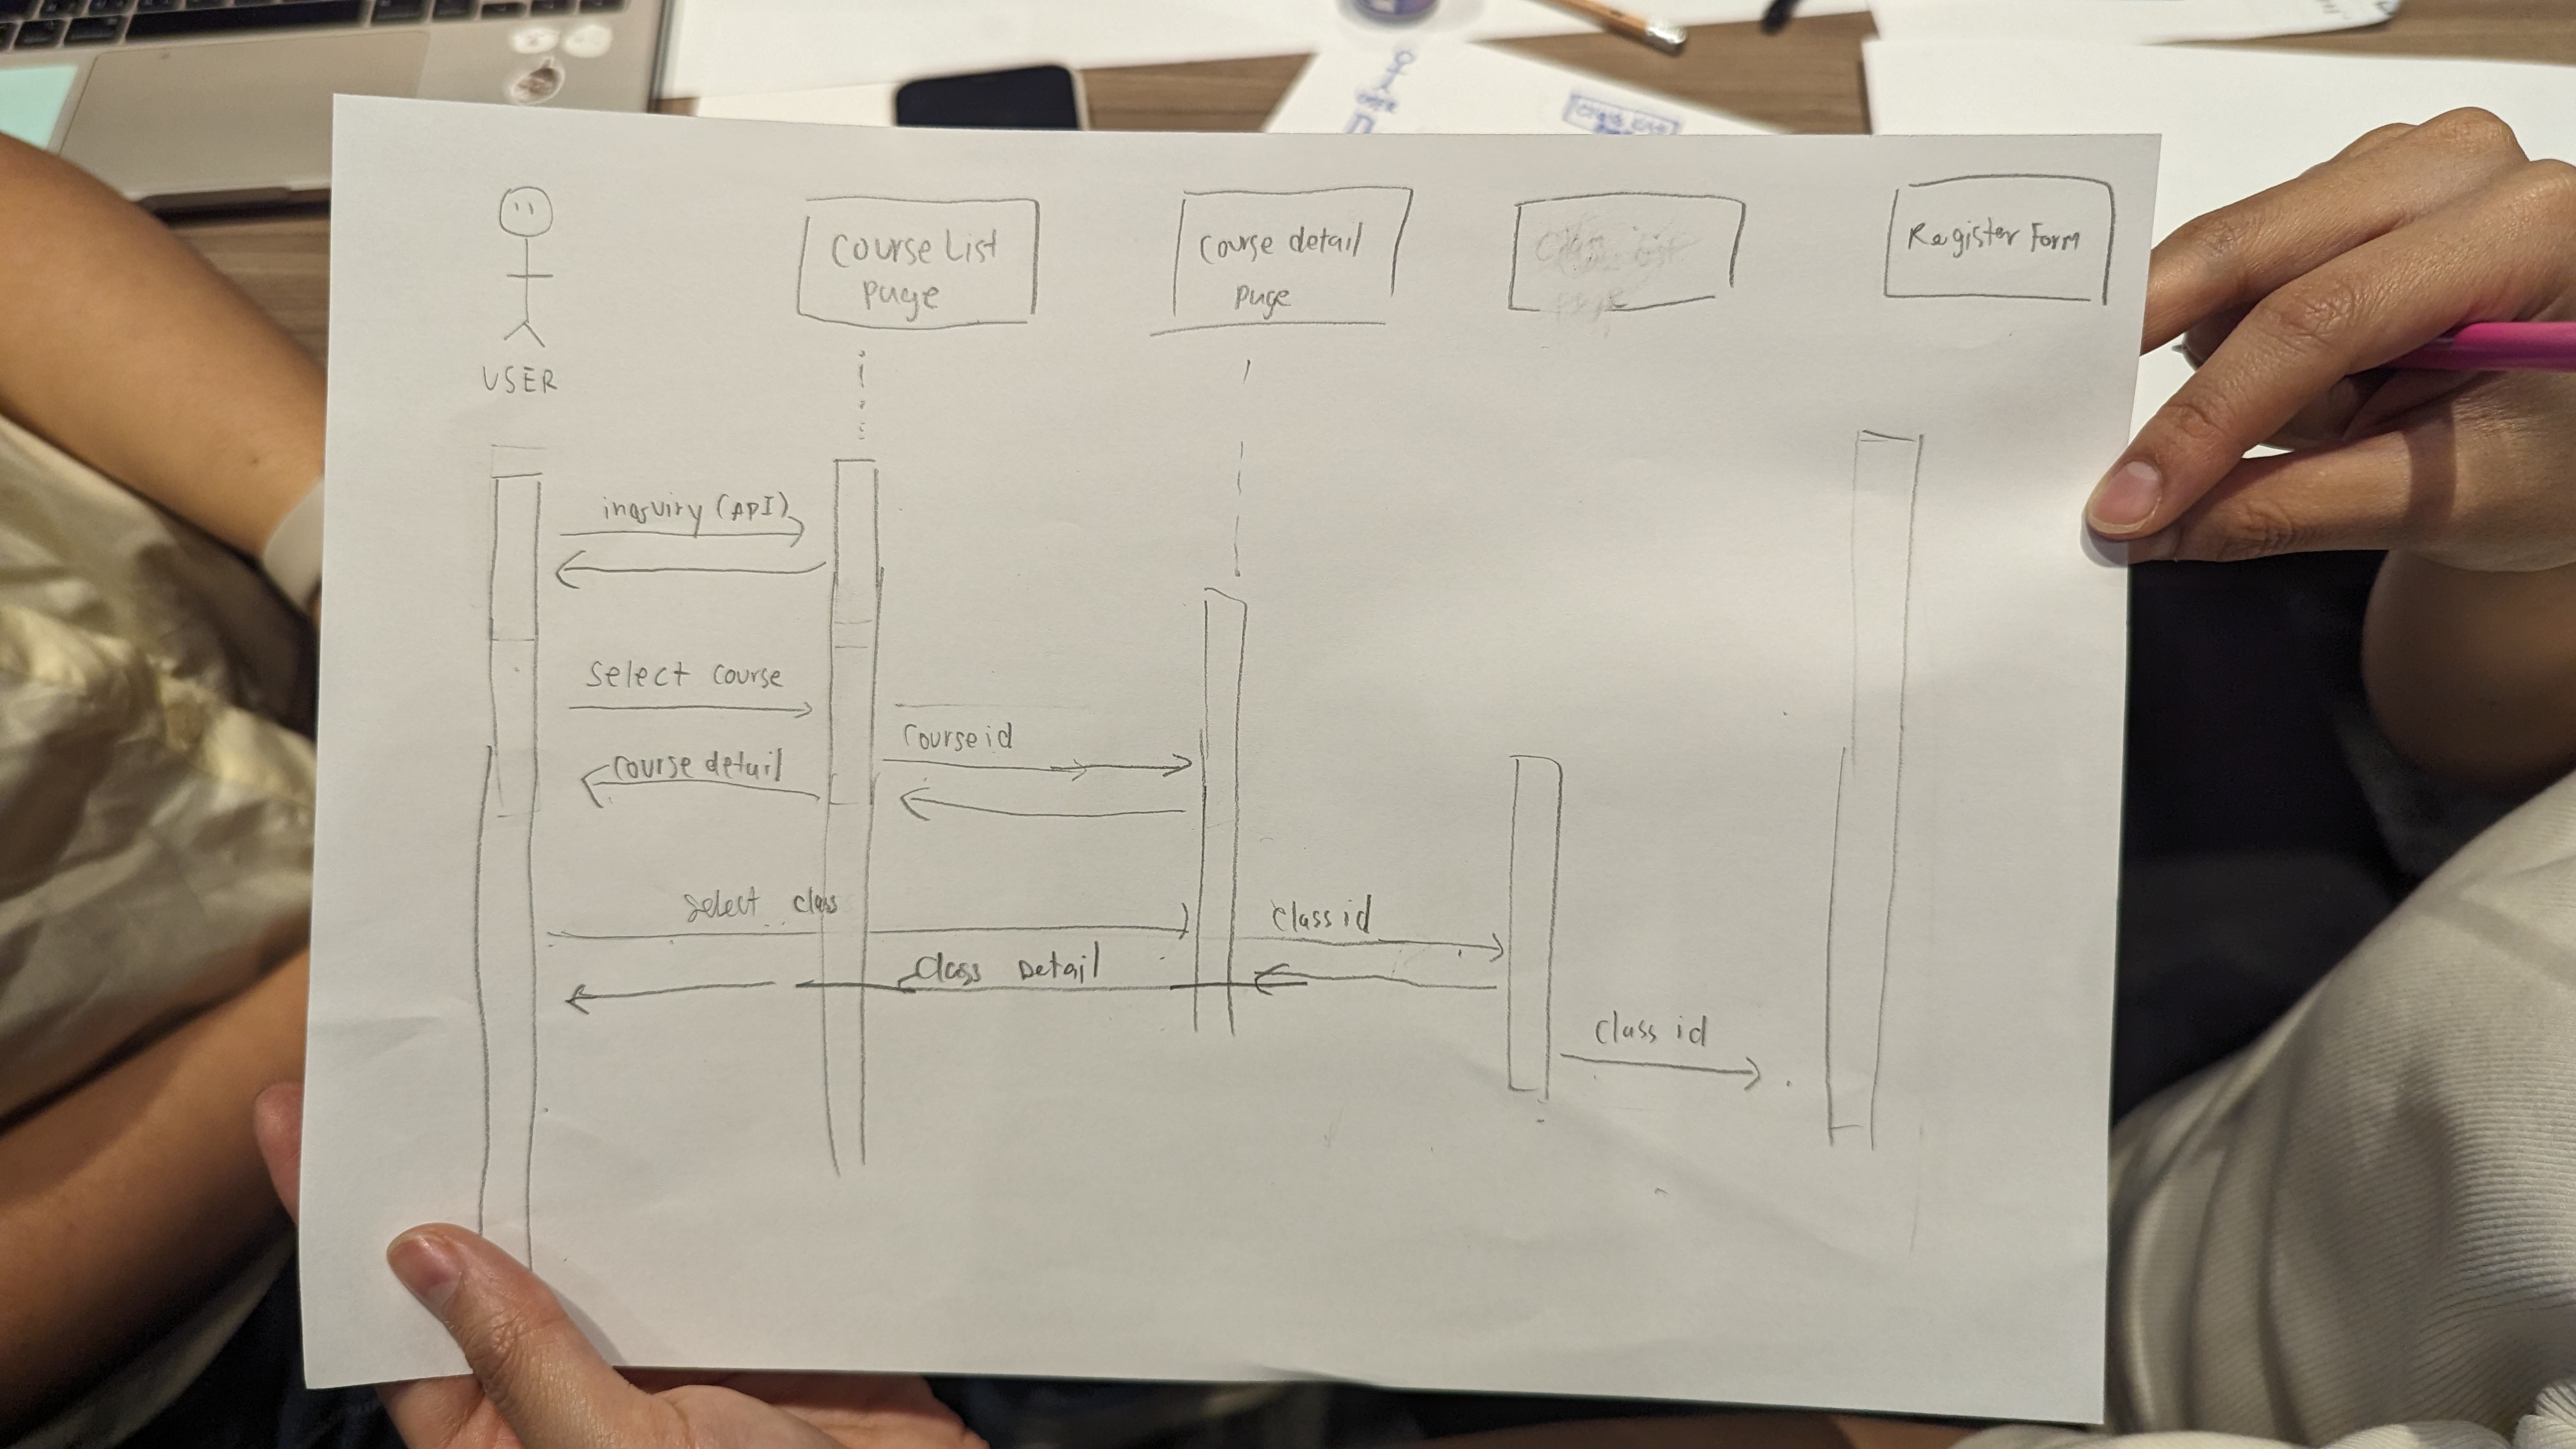 USER
Course List
page
Course detail
page
Register Form
inquiry (API)
select course
Course id
course detail
select class
class id
Class Detail
class id